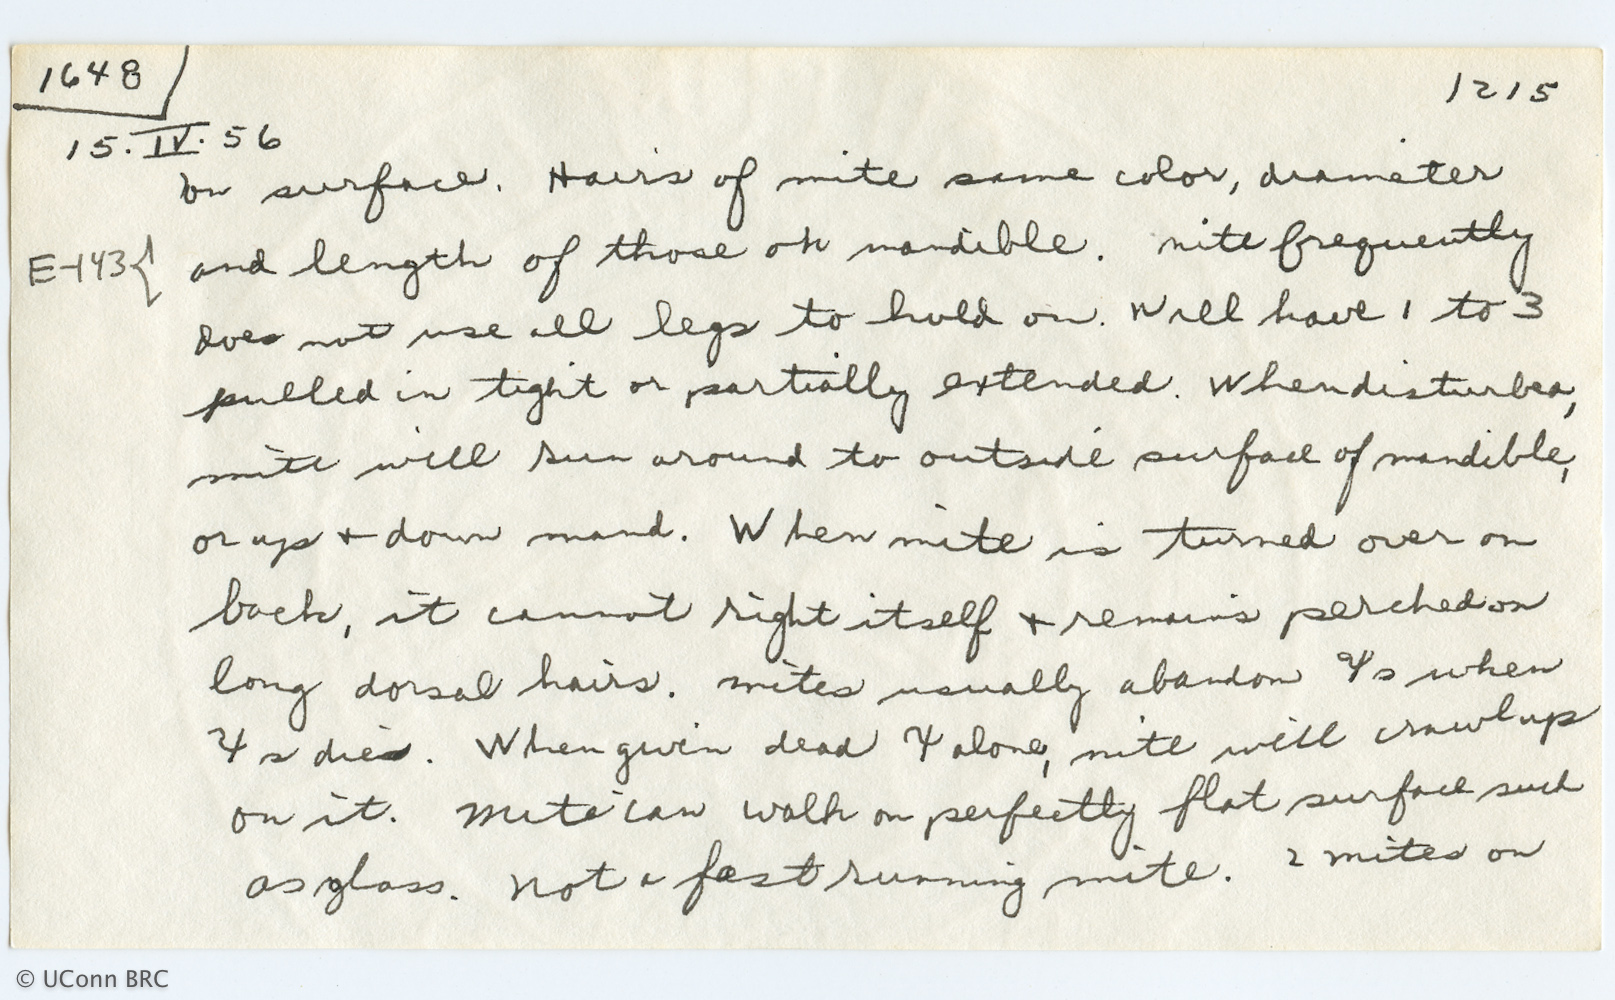 1648
1215
15.IV.56
on surface. Hairs of mite same color, diameter
E-143{ and length of those on mandible. mite frequently
does not use all legs to hold on. Will have 1 to 3
pulled in tight or partially extended. When disturbed,
mite will run around to outside surface of mandible,
or up + down mand. When mite is turned over on
back, it cannot right itself + remains perched on
long dorsal hairs. Mites usually abandon ♃s when
♃s dies. When given dead ♃ alone, mite will crawl up
on it. Mite can walk on perfectly flat surface such
as glass. Not a fast running mite. 2 mites on
© UConn BRC